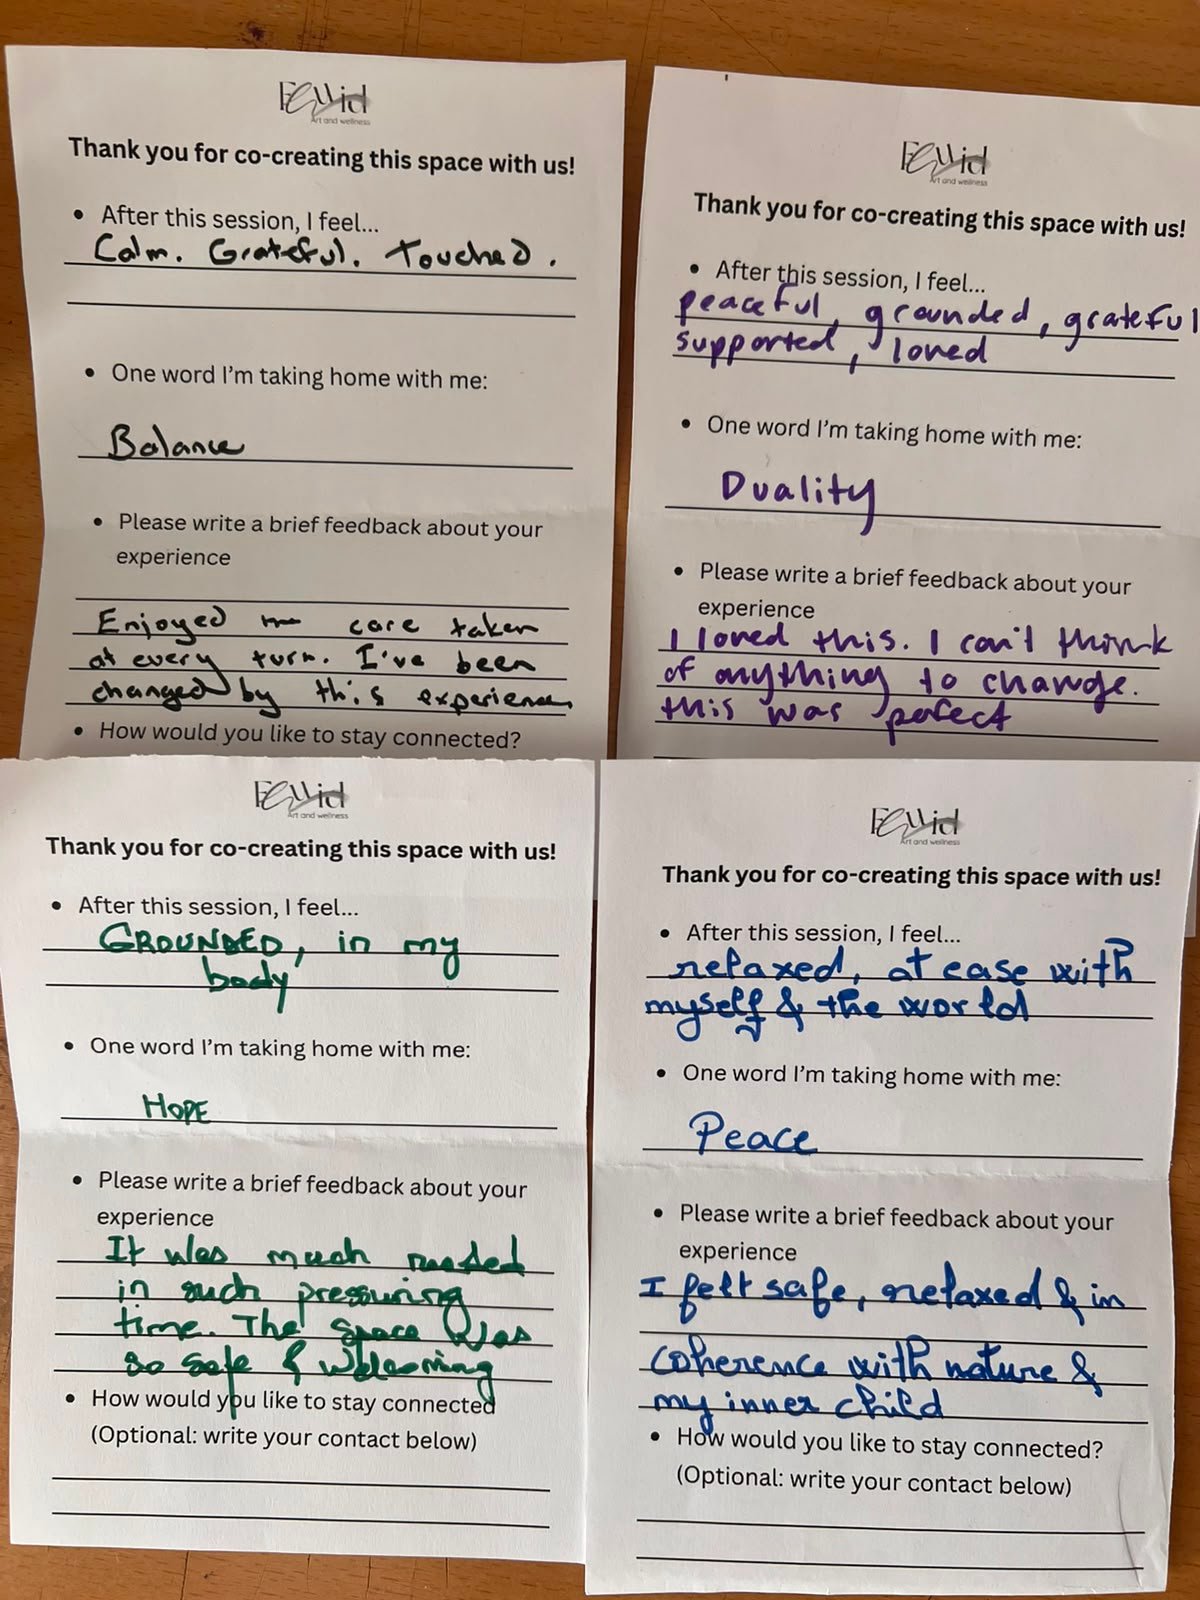 Art and wellness
Thank you for co-creating this space with us!
• After this session, I feel...
Calm. Grateful. Touched.
• One word I'm taking home with me:
Balance
• Please write a brief feedback about your
experience
Enjoyed the care taken
at every turn. I've been
changed by this experience
• How would you like to stay connected?
Art and wellness
Thank you for co-creating this space with us!
• After this session, I feel...
peaceful, grounded, grateful
supported, loved
• One word I'm taking home with me:
Duality
• Please write a brief feedback about your
experience
I loved this. I can't think
of anything to change.
this was pefect
Art and wellness
Thank you for co-creating this space with us!
• After this session, I feel...
GROUNDED, in my
body
• One word I'm taking home with me:
HOPE
• Please write a brief feedback about your
experience
It was much needed
in such pressuring
time. The space was
so safe & welcoming
• How would you like to stay connected
(Optional: write your contact below)
Art and wellness
Thank you for co-creating this space with us!
• After this session, I feel...
relaxed, at ease with
myself & the world
• One word I'm taking home with me:
Peace
• Please write a brief feedback about your
experience
I felt safe, relaxed & in
coherence with nature &
my inner child
• How would you like to stay connected?
(Optional: write your contact below)